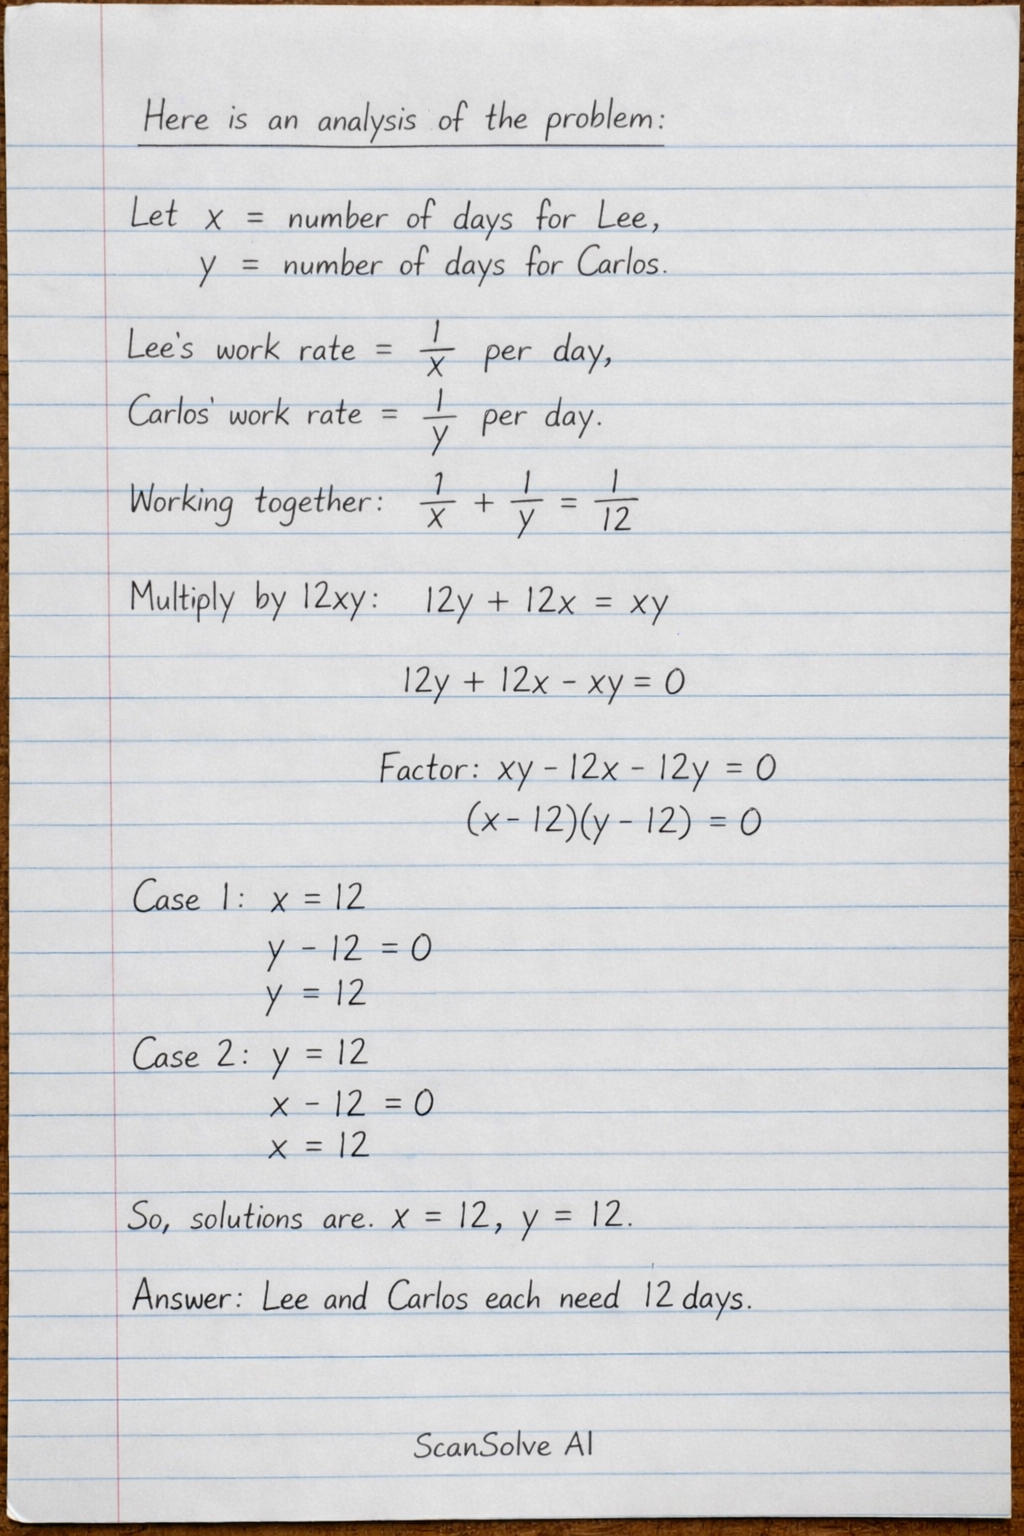 Here is an analysis of the problem:
Let x = number of days for Lee,
y = number of days for Carlos.
Lee's work rate = 1/x per day,
Carlos' work rate = 1/y per day.
Working together: 1/x + 1/y = 1/12
Multiply by 12xy: 12y + 12x = xy
12y + 12x - xy = 0
Factor: xy - 12x - 12y = 0
(x - 12)(y - 12) = 0
Case 1: x = 12
y - 12 = 0
y = 12
Case 2: y = 12
x - 12 = 0
x = 12
So, solutions are. x = 12, y = 12.
Answer: Lee and Carlos each need 12 days.
ScanSolve AI